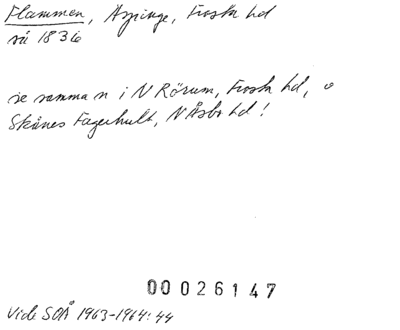 Flammen, Äspinge, Frosta hd
så 1836
se samma n i N Rörum, Frosta hd, o
Skånes Fagerhult, N Åsbo hd!
00026147
Vide SOÅ 1963-1964:44